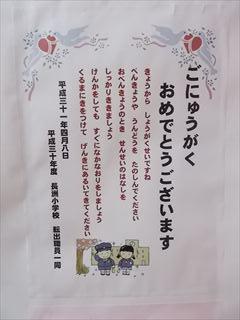 ごにゅうがく
おめでとうございます
きょうから しょうがくせいですね
べんきょうや うんどうを たのしんでください
おべんきょうのとき せんせいのはなしを
しっかりききましょう
けんかをしても すぐになかなおりをしましょう
くるまにきをつけて げんきにあるいてきてください
平成三十一年四月八日
平成三十年度 長洲小学校 転出職員一同